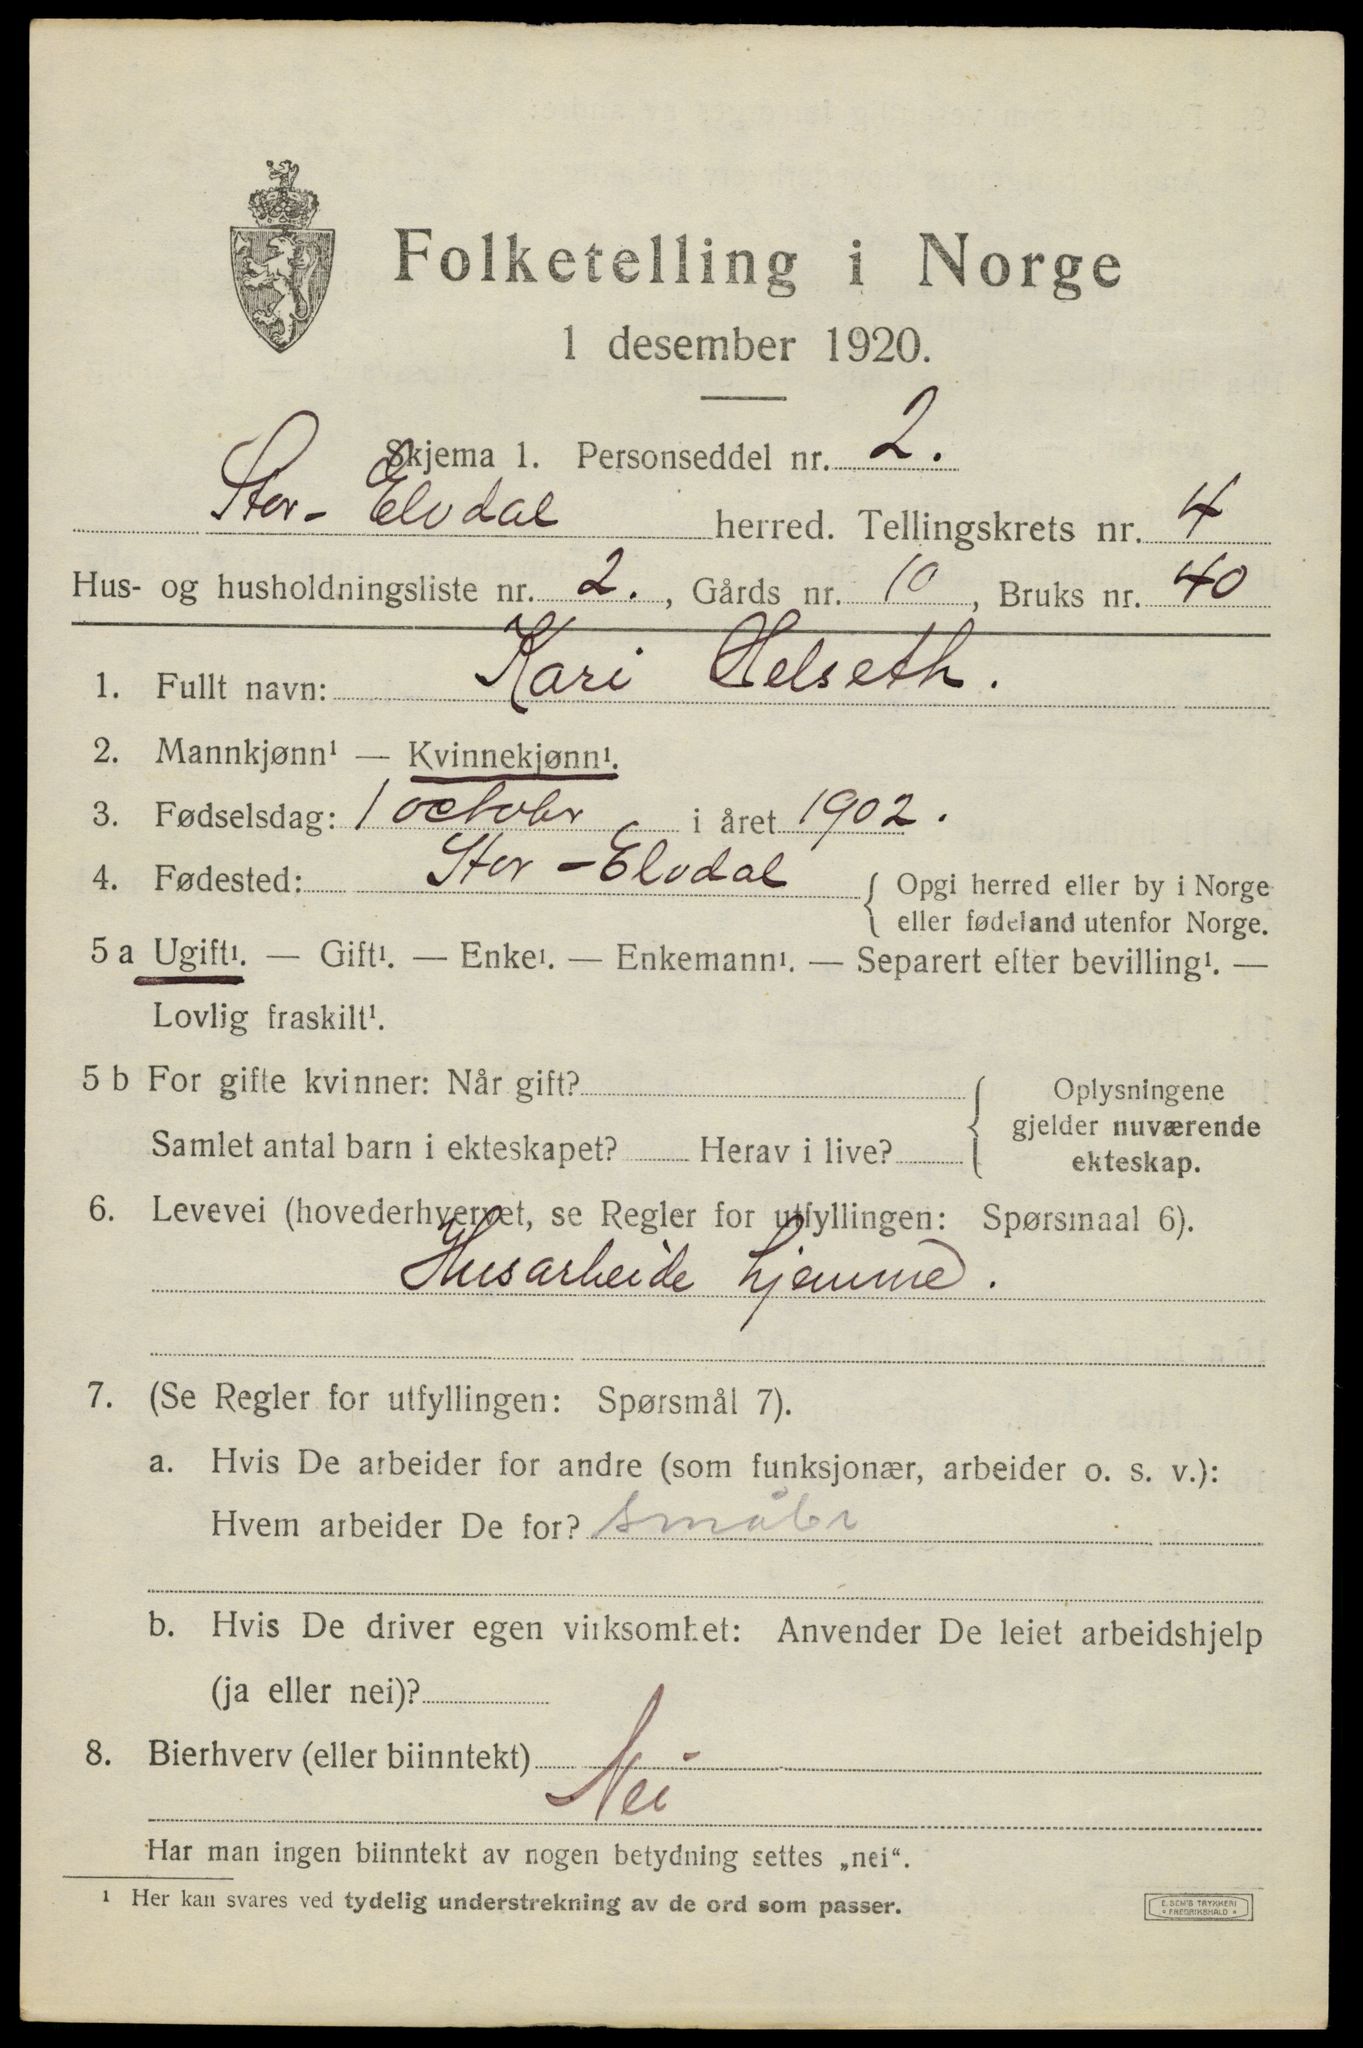 Folketelling i Norge
1 desember 1920.
Skjema 1. Personseddel nr. 2.
Stor-Elvdal herred. Tellingskrets nr. 4
Hus- og husholdningsliste nr. 2., Gårds nr. 10, Bruks nr. 40
1. Fullt navn: Kari Helseth.
2. Mannkjønn¹ — Kvinnekjønn¹.
3. Fødselsdag: 1 october i året 1902.
4. Fødested: Stor-Elvdal { Opgi herred eller by i Norge
eller fødeland utenfor Norge.
5 a Ugift¹. — Gift¹. — Enke¹. — Enkemann¹. — Separert efter bevilling¹. —
Lovlig fraskilt¹.
5 b For gifte kvinner: Når gift? { Oplysningene
gjelder nuværende
Samlet antal barn i ekteskapet? Herav i live?
ekteskap.
6. Levevei (hovederhvervet, se Regler for utfyllingen: Spørsmaal 6).
Husarbeide hjemme.
7. (Se Regler for utfyllingen: Spørsmål 7).
a. Hvis De arbeider for andre (som funksjonær, arbeider o. s. v.):
Hvem arbeider De for? småbr
b. Hvis De driver egen virksomhet: Anvender De leiet arbeidshjelp
(ja eller nei)?
8. Bierhverv (eller biinntekt)
Nei
Har man ingen biinntekt av nogen betydning settes „nei“.
¹ Her kan svares ved tydelig understrekning av de ord som passer.
E. SEM'S TRYKKERI
* FREDRIKSHALD *